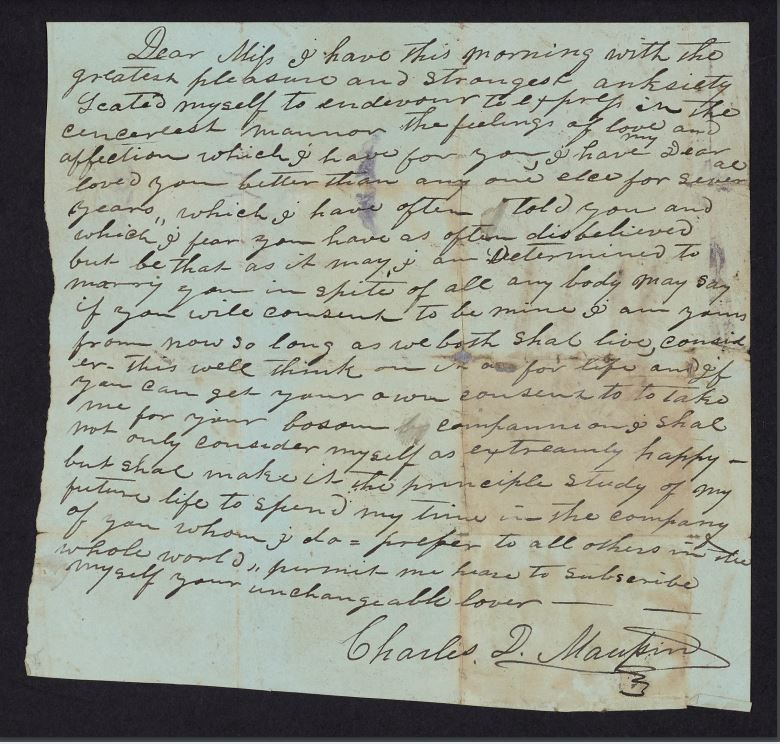 Dear Miss I have this morning with the
greatest pleasure and strongest anksiety
Seated myself to endevour to express in the
cencereest mannor the feelings of love and
affection which I have for you, I have my Dear
loved you better than any one else for sever
al
years, which I have often told you and
which I fear you have as often disbelieved
but be that as it may I am Determined to
marry you in spite of all any body may say
if you will consent to be mine I am yours
from now so long as we both shal live, consid
er- this well think on it as for life and if
you can get your own consent to to take
me for your bosom companion I shal
not only consider myself as extreamly happy -
but shal make it the principle study of my
future life to spend my time in the company
of you whom I do = prefer to all others in the
whole world, permit me heare to subscribe
myself your unchangeable lover —— ——
Charles. D. Maupin